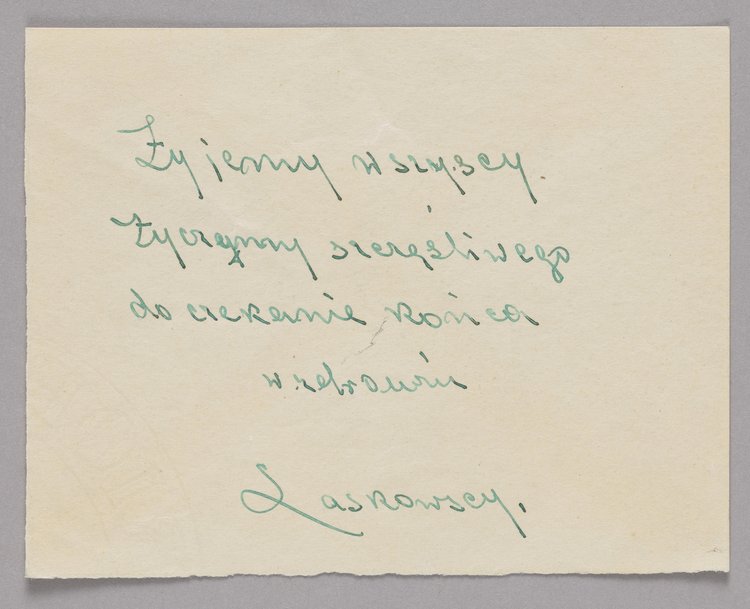 Żyjemy wszyscy.
Życzymy szczęśliwego
do czekanie końca
w zdrowiu
Laskowscy.